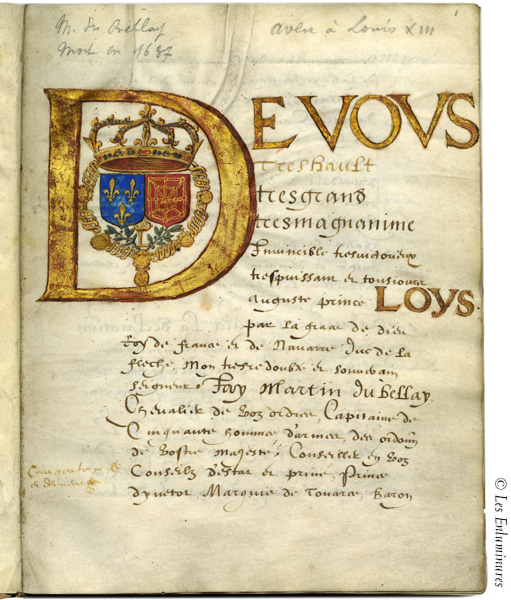 M. du Bellay
Mort en 1637
aveu à Louis XIII
1
DE VOVS
Treshault
tresgrand
tresmagnanime
Invincible tresvictorieux
trespuissant et tousiours
auguste prince LOYS.
par la grace de dieu
Roy de france et de Navarre duc de la
fleche, Mon tresredoubté et souverain
seigneur. Je Martin du Bellay.
Chevalier de voz ordres, Capitaine de
Cinquante hommes d'armes, des ordonn
de vostre majesté, Conseiller en voz
Conseilz d'estat et privé, Prince
dyvetot Marquis de Touarce, Baron
© Les Enluminures